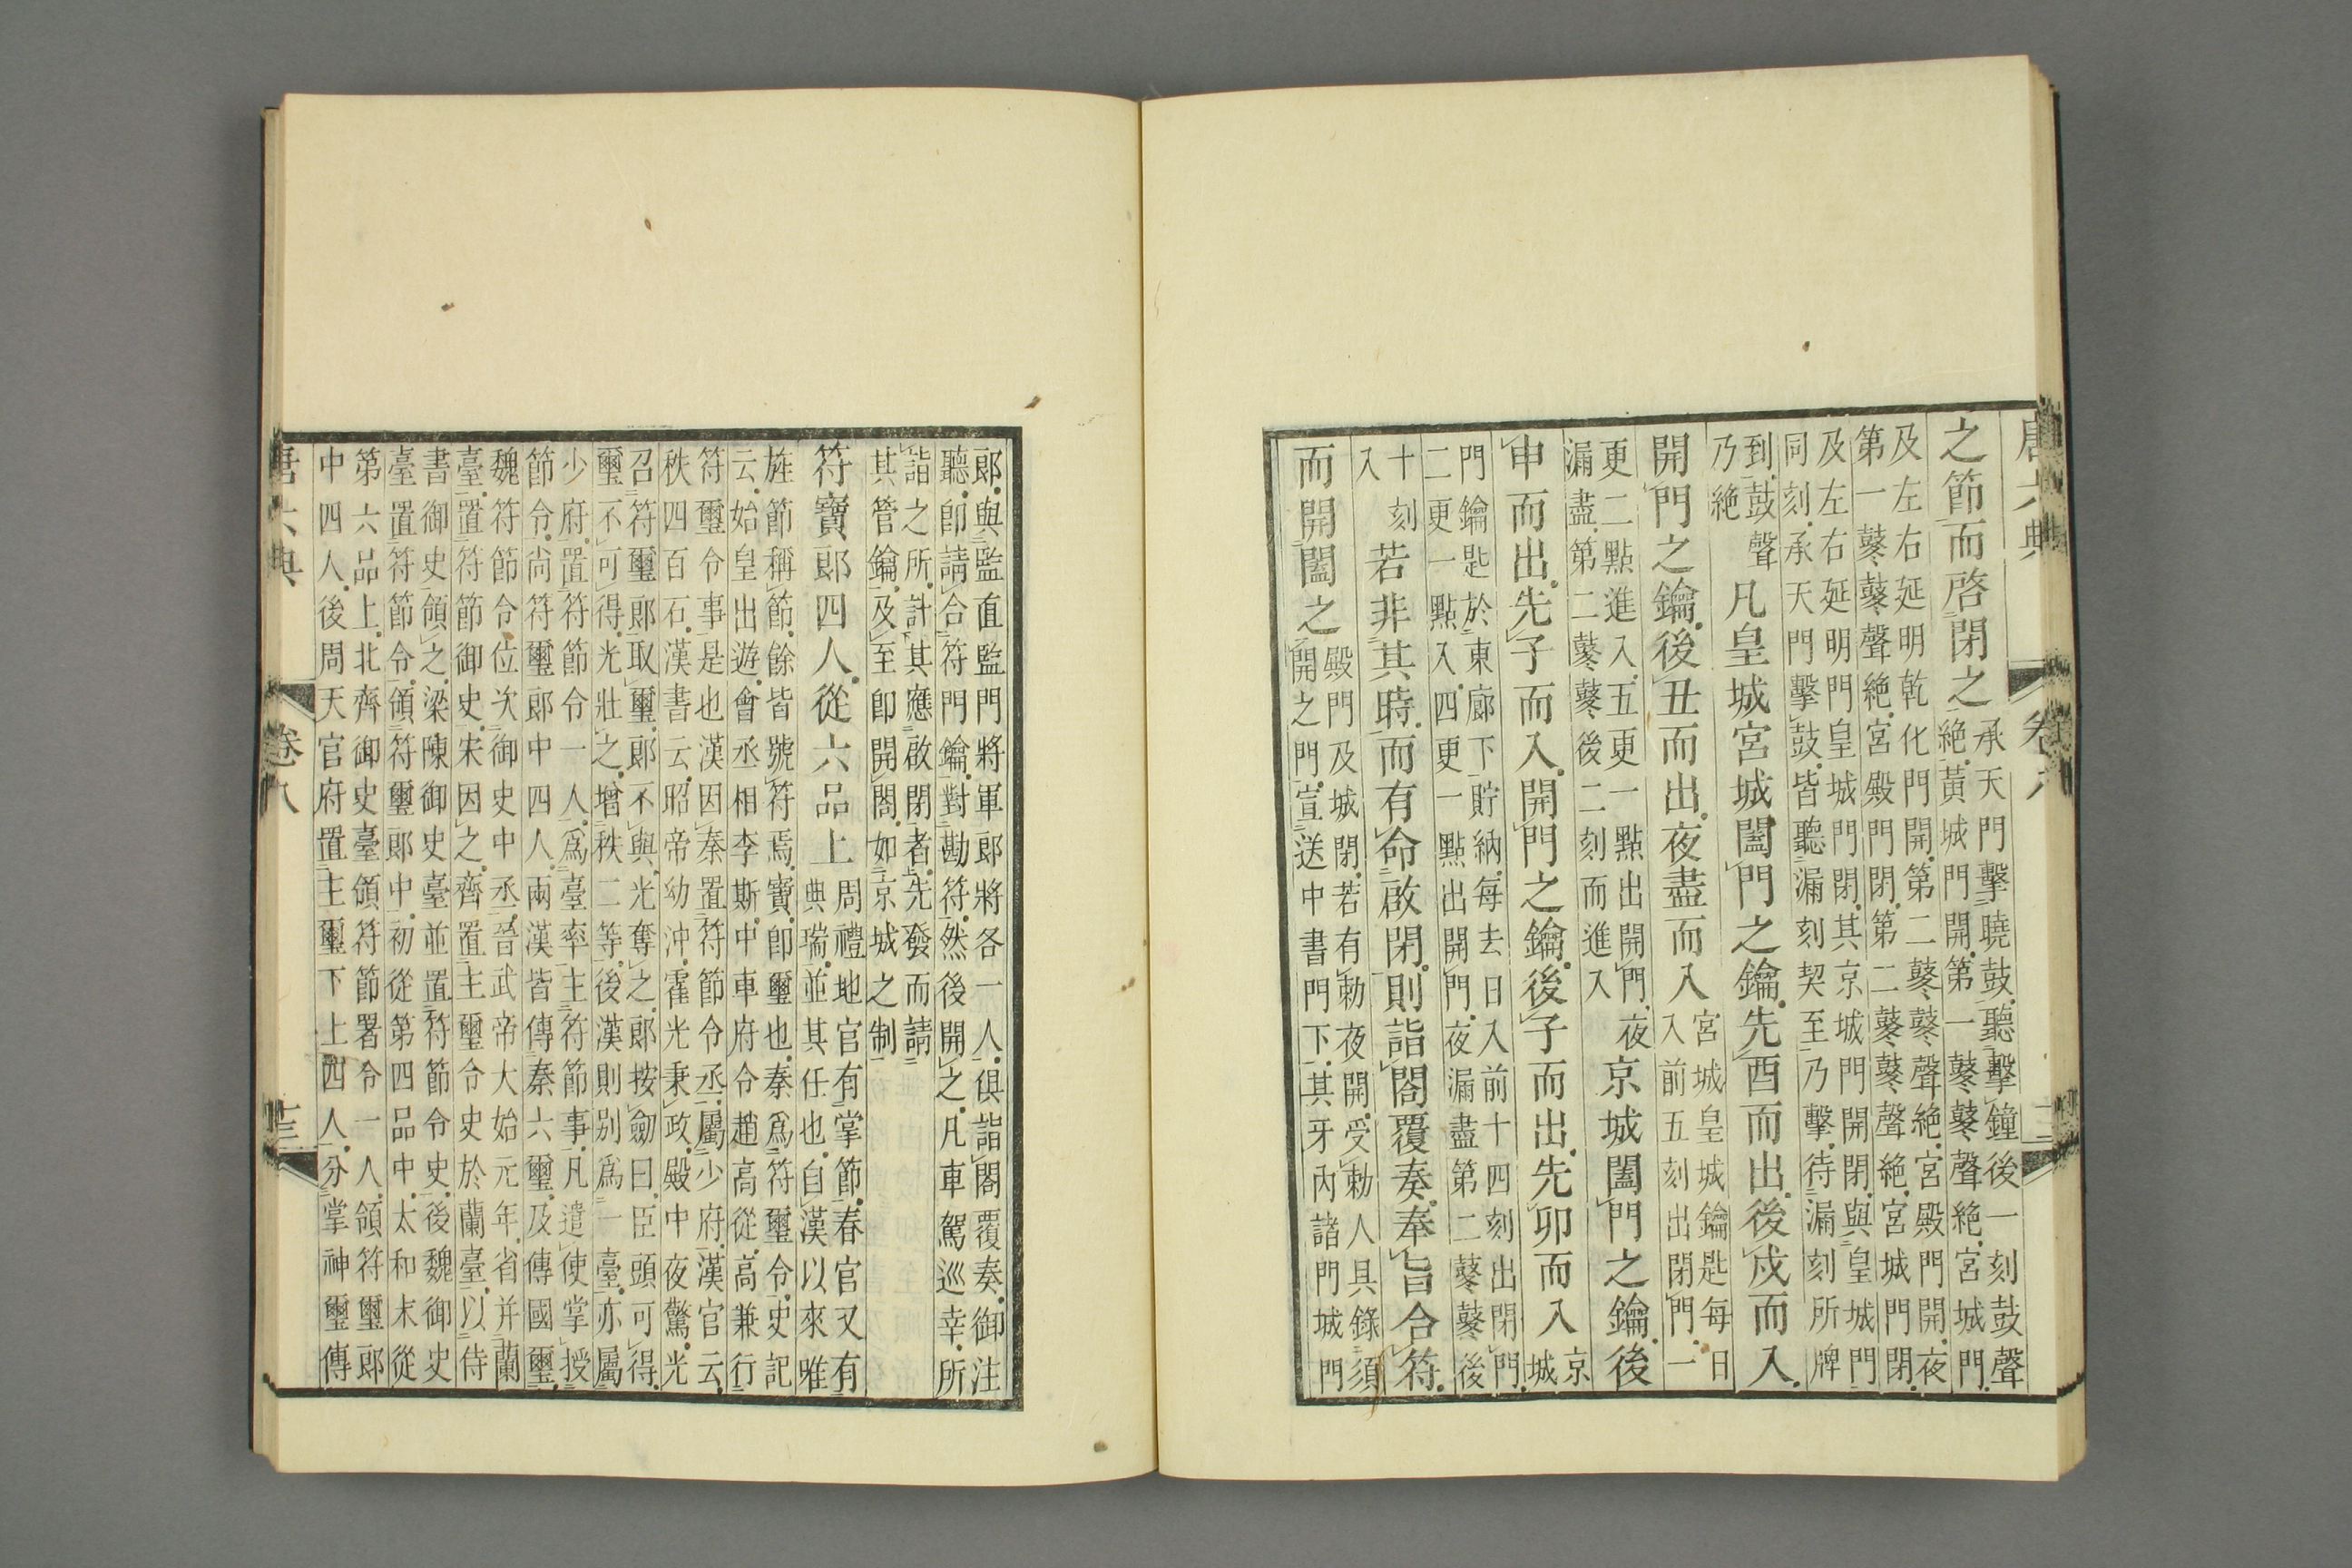 唐六典
卷八
之節而啓閉之
承天門擊曉鼓聽擊鐘後一刻鼓聲
絶黃城門開第一鼕鼕聲絶宮城門
及左右延明乾化門開第二鼕鼕聲絶宮殿門開夜
第一鼕鼕聲絶宮殿門閉第二鼕鼕聲絶宮城門閉
及左右延明門皇城門閉其京城門開閉與皇城門
同刻承天門擊鼓皆聽漏刻契至乃擊待漏刻所牌
到鼓聲
乃絶
凡皇城宮城闔門之鑰先酉而出後戍而入
開門之鑰後丑而出夜盡而入
宮城皇城鑰匙每日
入前五刻出閉門一
更二點進入五更一點出開門夜
漏盡第二鼕鼕後二刻而進入
京城闔門之鑰後
申而出先子而入開門之鑰後子而出先卯而入
京
城
門鑰匙於東廊下貯納每去日入前十四刻出閉門
二更一點入四更一點出開門夜漏盡第二鼕鼕後
十刻
入
若非其時而有命啟閉則詣閤覆奏奉旨合符
而開闔之
殿門及城閉若有勅夜開受勅人具錄須
開之門宣送中書門下其牙內諸門城門
郎與監直監門將軍郎將各一人俱詣閤覆奏御注
聽卽請合符門鑰對勘符然後開之凡車駕巡幸所
詣之所計其應啟閉者先發而請
其管鑰及至卽開閤如京城之制
符寶郎四人從六品上
周禮地官有掌節春官又有
典瑞並其任也自漢以來唯
旌節稱節餘皆號符焉寶卽璽也秦爲符璽令史記
云始皇出遊會丞相李斯中車府令趙高從高兼行
符璽令事是也漢因秦置符節令丞屬少府漢官云
秩四百石漢書云昭帝幼沖霍光秉政殿中夜驚光
召符璽郎取璽郎不與光奪之郎按劒曰臣頭可得
璽不可得光壯之增秩二等後漢則别爲一臺亦屬
少府置符節令一人爲臺率主符節事凡遣使掌授
節令尚符璽郎中四人兩漢皆傳秦六璽及傳國璽
魏符節令位次御史中丞晉武帝大始元年省并蘭
臺置符節御史宋因之齊置主璽令史於蘭臺以侍
書御史領之梁陳御史臺並置符節令史後魏御史
臺置符節令領符璽郎中初從第四品中太和末從
第六品上北齊御史臺領符節署令一人領符璽郎
中四人後周天官府置主璽下上四人分掌神璽傳
唐六典
卷八
十三